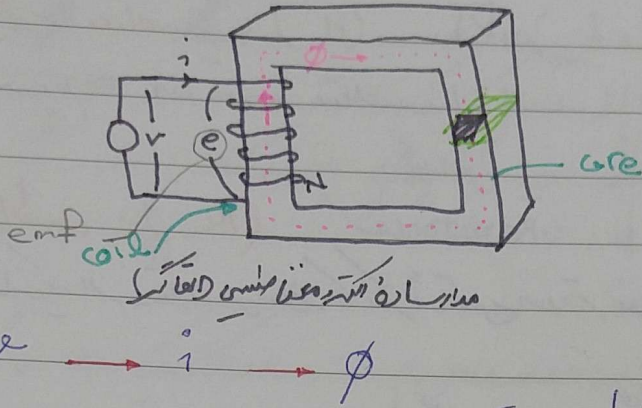 i
Φ
v
e
N
core
emf
coil
مدار ساده الکترومغناطیسی القاگر
e → i → Φ